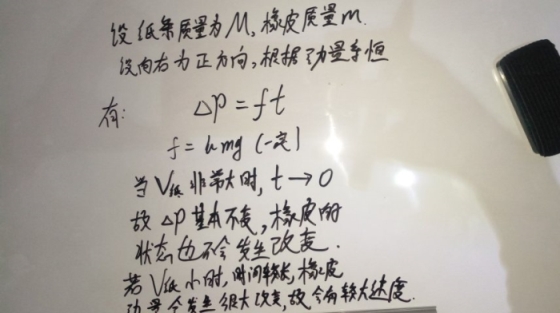 设纸条质量为M,橡皮质量m.
设向右为正方向,根据动量守恒
有: ΔP=ft
f=umg(一定)
当V纸非常大时,t→0
故ΔP基本不变,橡皮的
状态也不会发生改变.
若V纸小时,时间较长,橡皮
动量会发生很大改变,故会有较大速度.